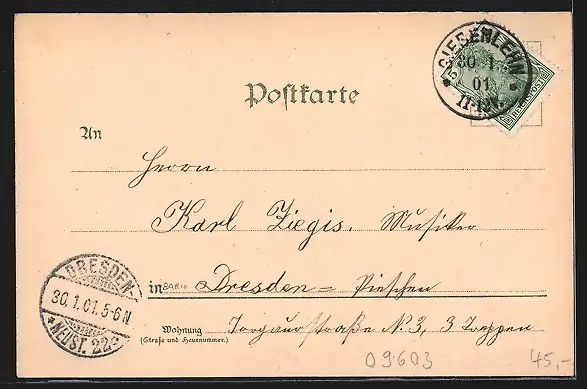 SIEBENLEHN
30 1
01
11-12V.
REICHSPOST
Postkarte
An
Herrn
Karl Ziegis, Musiker
in Dresden = Pieschen
DRESDEN-
30.1.01.5-6N
*NEUST. 22
Wohnung Torgauerstraße N. 3, 3 Treppen
(Straße und Hausnummer.)
09603
45,-